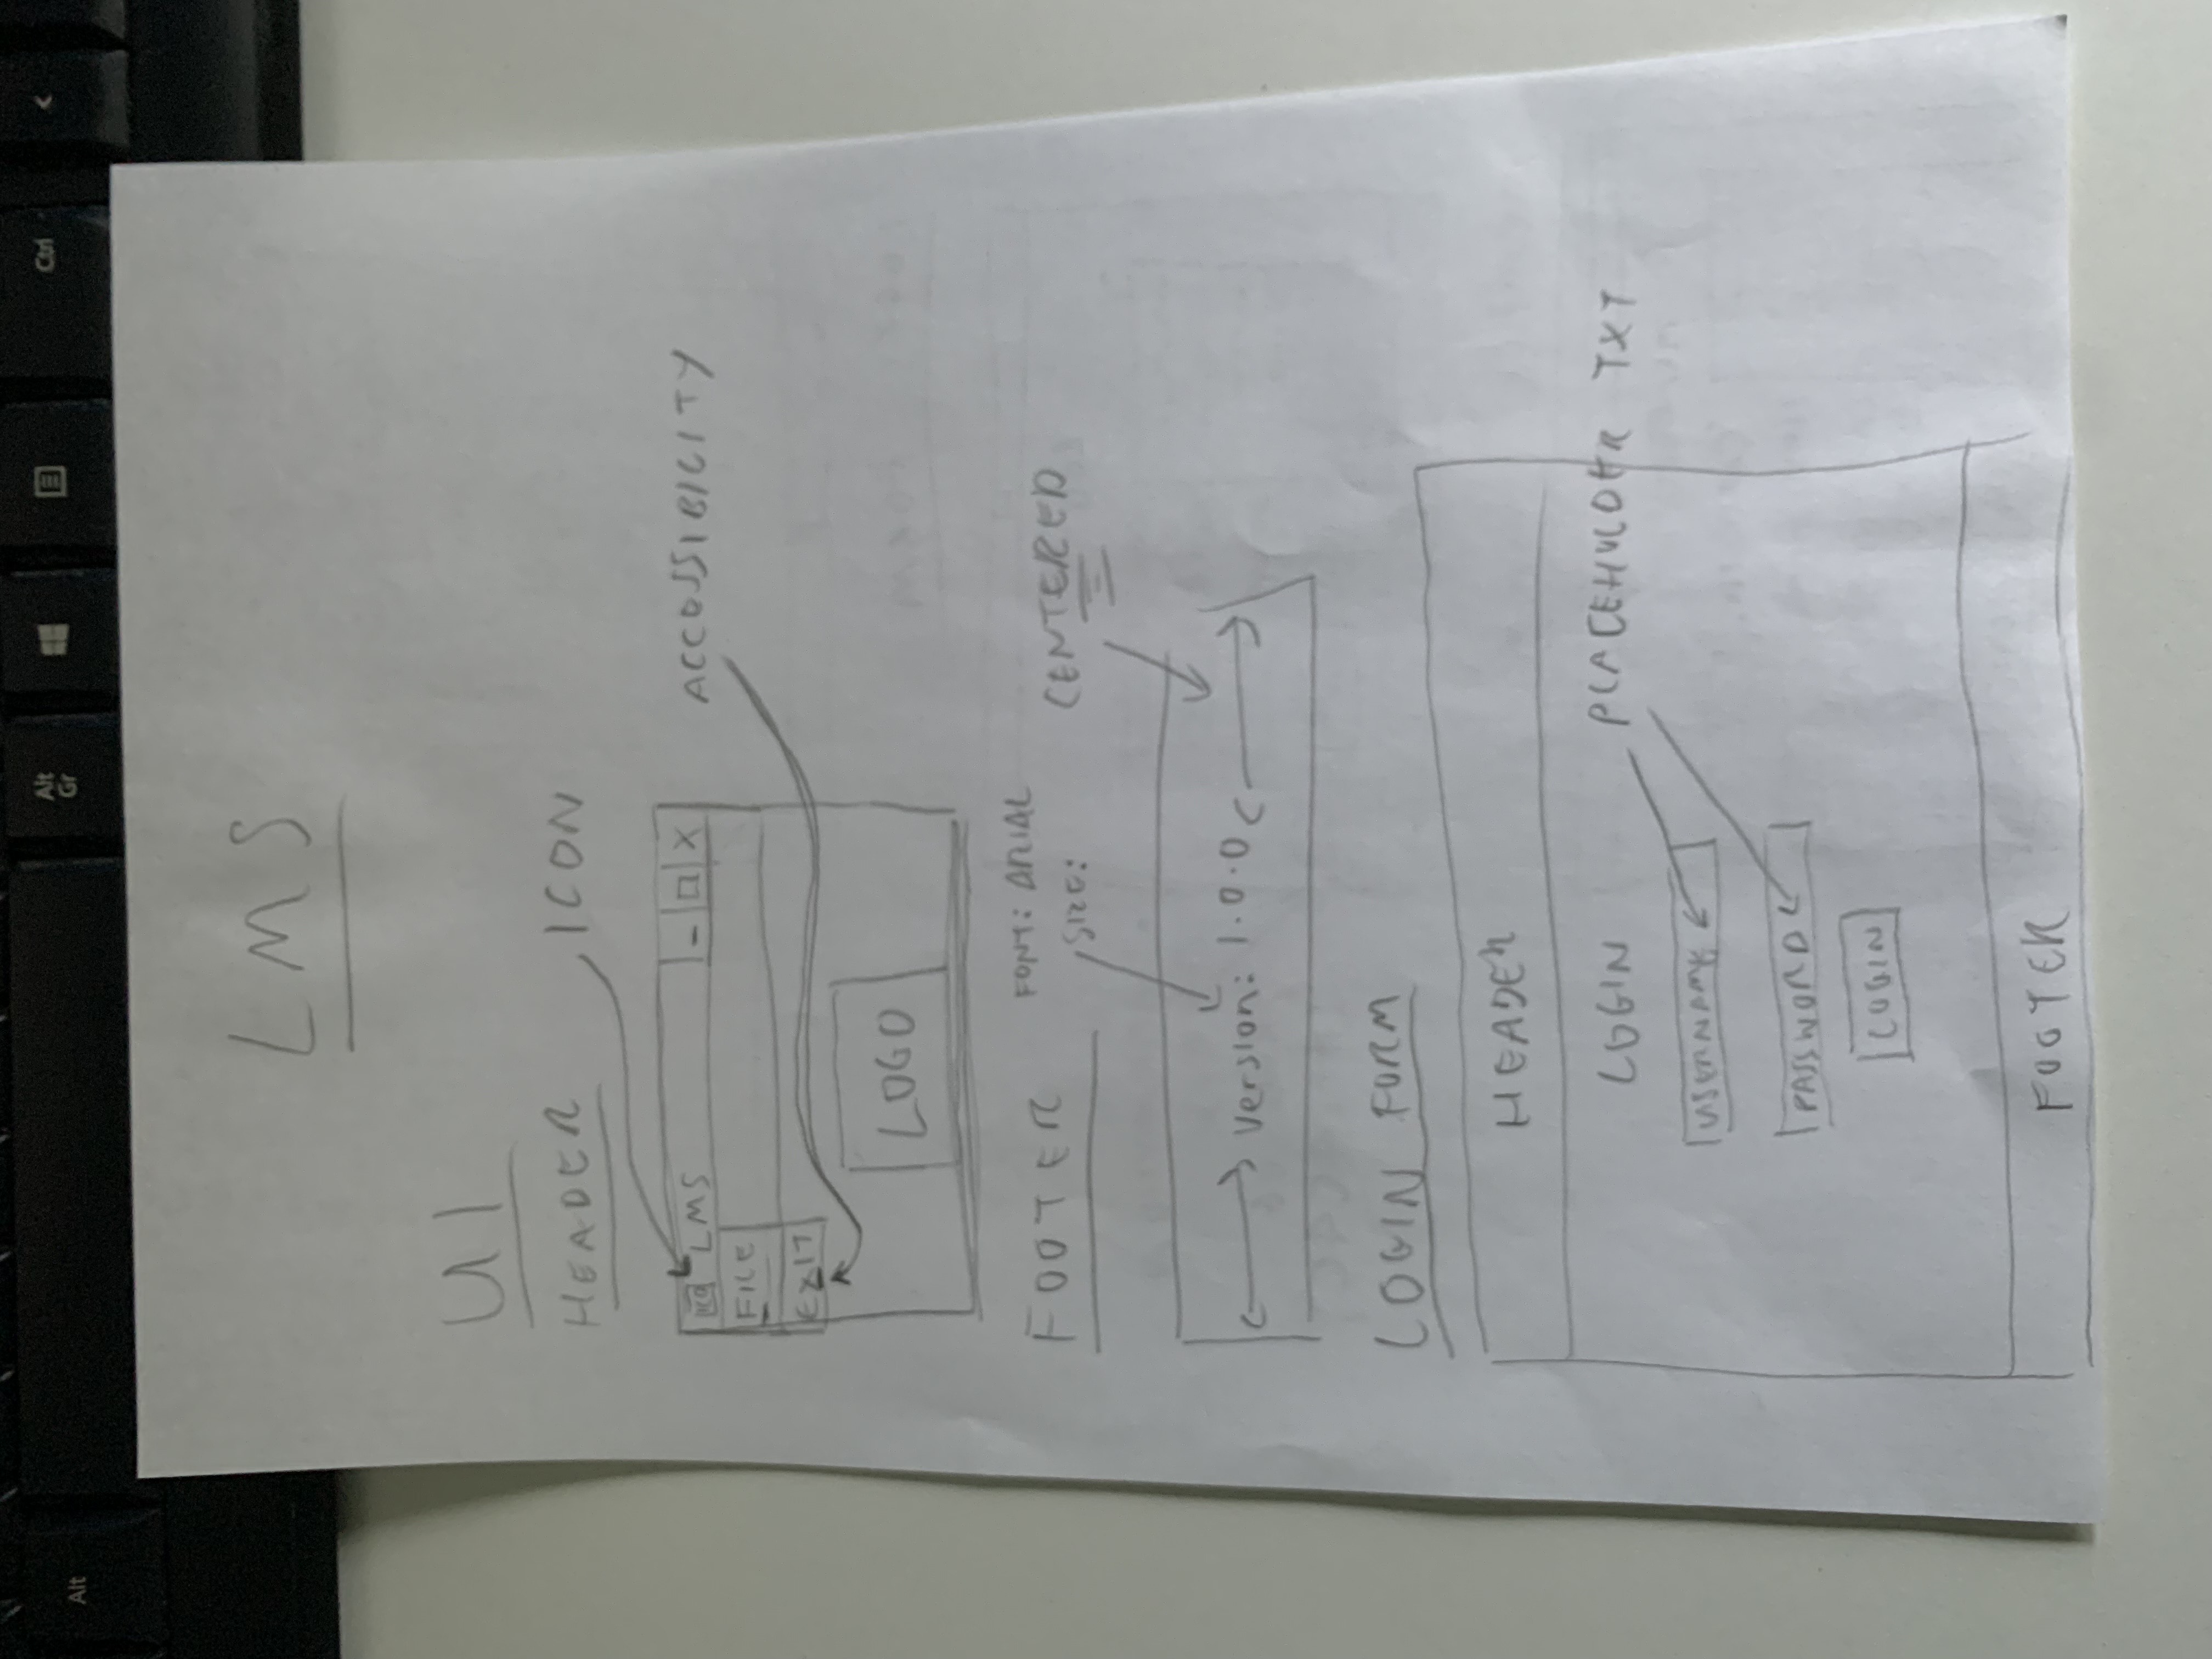 Alt
Alt Gr
Ctrl
<
LMS
UI
HEADER
ICON
ICO LMS _ X
ACCOSSIBILITY
FILE
EXIT
LOGO
FOOTER
FONT: ARIAL
SIZE:
CENTERED
Version: 1.0.0
LOGIN FORM
HEADER
LOGIN
PLACEHOLDER TXT
USERNAME
PASSWORD
LOGIN
FOOTER